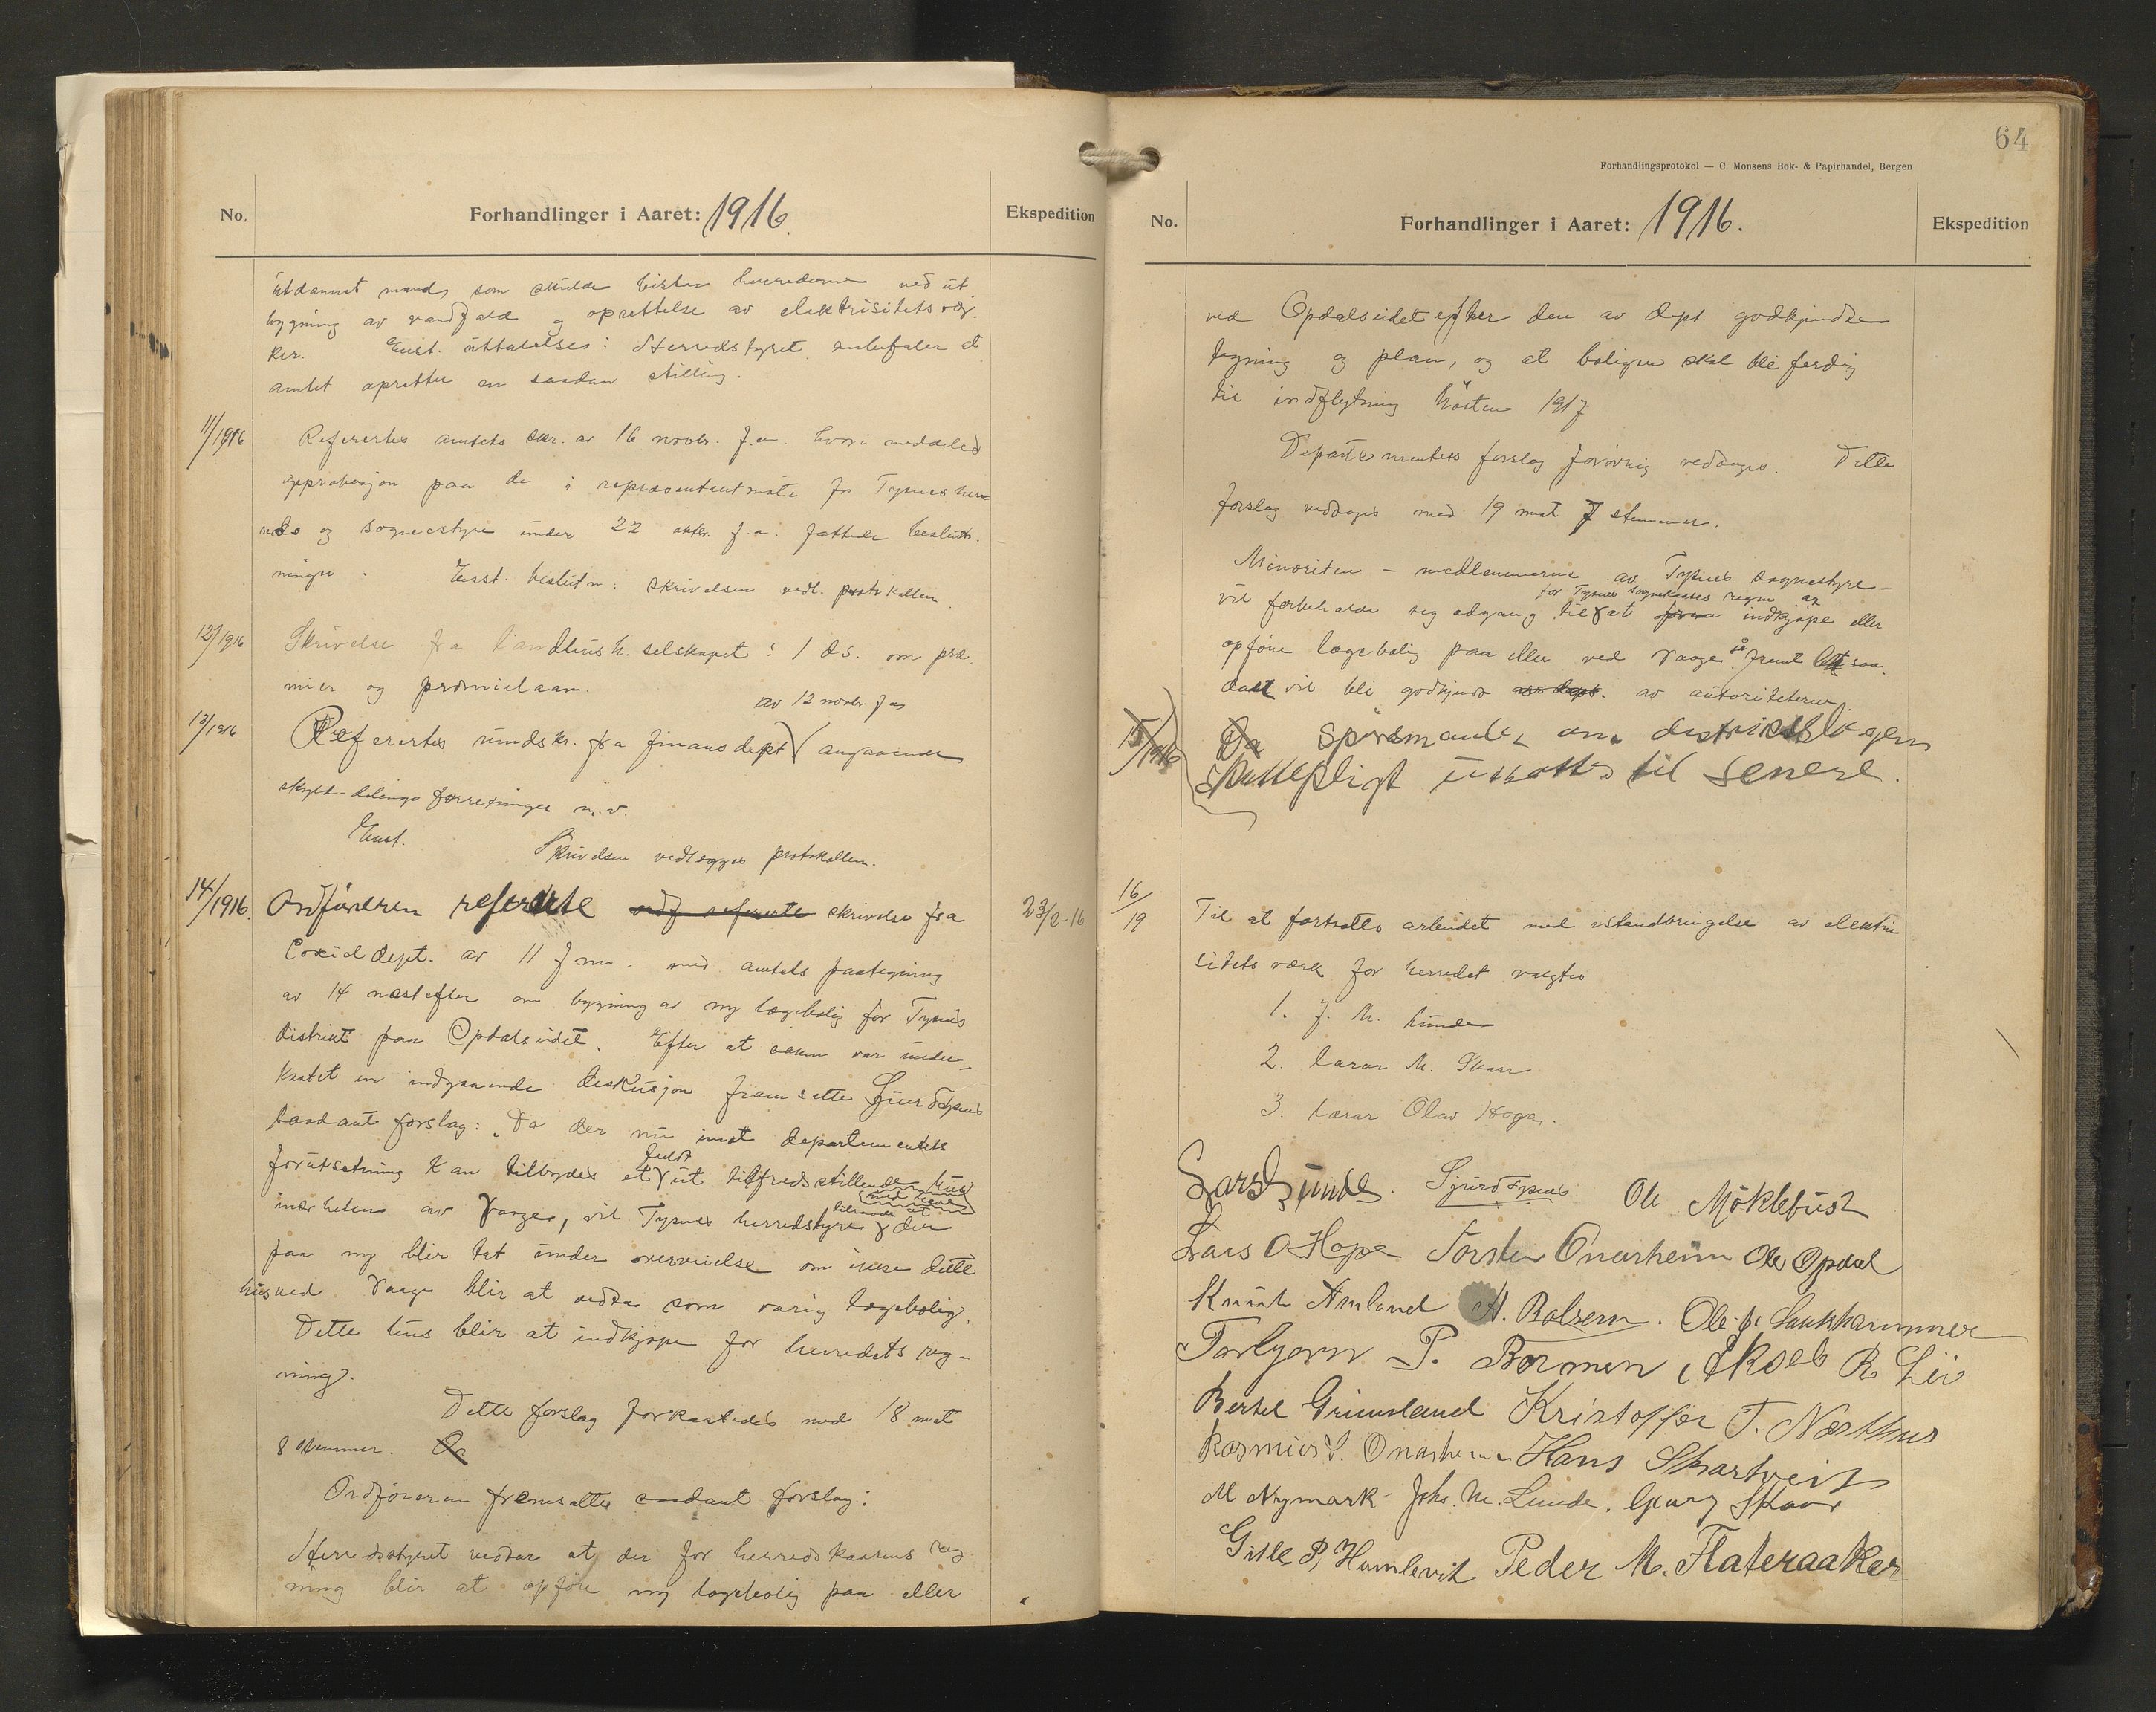 No.
Forhandlinger i Aaret: 1916.
Ekspedition
utdannet mand, som skulde bistaa herrederne ved ut
bygning av vandfald og oprettelse av elektrisitetsvær-
ker. Enst. uttalelse: Herredstyret anbefaler at
amtet opretter en saadan stilling.
11/1916
Refertes amtets skr. av 16 novbr. f.a. hvori meddeles
approbasjon paa de i repræsentantmøte for Tysnes her-
reds og sognestyre under 22 oktbr. f.a. fattede beslut-
ninger. Enst. beslutn: skrivelsen vedl. protokollen.
12/1916
Skrivelse fra landhush. selskapet: 1 ds. om præ-
mier og præmielaan.
av 12 novbr. f.a.
13/1916
Refertes rundskr. fra finansdept angaaende
skyld-delings forretninger m.v.
Enst.
Skrivelsen vedlegges protokollen.
14/1916.
Ordføreren refererte ordf refererte skrivelse fra
23/2-16.
Socialdept. av 11 f.m. med amtets paategning
av 14 næstefter om bygning av ny lægebolig for Tysnes
distrikt paa Opdalseidet. Efter at saken var under-
kastet en indgaaende diskusjon framsette Sjur Tysnes
saadant forslag: "Da der nu imot departementets
forutsetning kan tilbydes et fuldt ut tilfredsstillende hus
med have
nærheten av Vaage, vil Tysnes herredstyre tilraade at der
paa ny blir tat under overveielse om ikke dette
hus ved Vaage blir at vedta som varig lægebolig.
Dette hus blir at indkjøpe for herredets reg-
ning.
Dette forslag forkastedes med 18 mot
8 stemmer. Or
Ordføreren fremsatte saadant forslag:
Herredsstyret vedtar at der for herredskassens reg
ning blir at opføre ny lægebolig paa eller
64
Forhandlingsprotokol — C. Monsens Bok- & Papirhandel, Bergen
No.
Forhandlinger i Aaret: 1916.
Ekspedition
ved Opdalseidet efter den av dept. godkjendte
tegning og plan, og at boligen skal bli ferdig
til indflytning høsten 1917
Departementets forslag forøvrig vedtages. Dette
forslag vedtages med 19 mot 7 stemmer.
Minoriteten – medlemmerne av Tysnes sognestyre –
for Tysnes sognekasses regn. at
vil forbeholde sig adgang til at indkjøpe eller
opføre lægebolig paa eller ved Vaage så fremt let saa
dant vil bli godkjent av dept. av autoriteterne.
15/1916
Da spørsmaalet om distriktslægens
skattepligt utsattes til senere.
16/19
Til at fortsætte arbeidet med istandbringelse av elektri
sitets værk for herredet valgtes
1. J. M. Lunde
2. lærar M. Skaar
3. lærar Olav Hope.
Lars Lunde. Sjurd Tysnes Ole Möklebust
Lars O Hope Torsten Onarheim Ole Opdal
Knut Amland H. Balsem. Ole Sunkhammer
Torbjørn P. Bormen, Aksel R Lie
Bertel Grimsland Kristoffer T. Næsthus
Rasmus S. Onarheim Hans Skartveit
M Nymark Johs. M. Lunde. Georg Skaar
Gitle P. Humlevik Peder M. Flateraaker